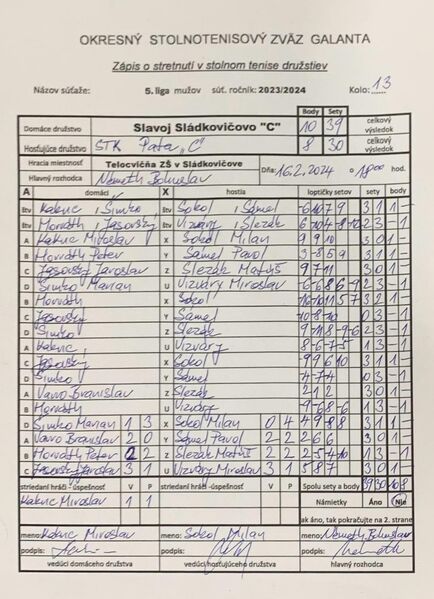 OKRESNÝ STOLNOTENISOVÝ ZVÄZ GALANTA
Zápis o stretnutí v stolnom tenise družstiev
Názov súťaže: 5. liga mužov súť. ročník: 2023/2024 Kolo: 13
Body sety
Domáce družstvo Slavoj Sládkovičovo "C" 10 39 celkový výsledok
Hosťujúce družstvo STK Pata "C" 8 30 celkový výsledok
Hracia miestnosť Telocvičňa ZŠ v Sládkovičove Dňa: 16.2.2024 o 1800 hod.
Hlavný rozhodca Németh Bohuslav
A domáci X hostia loptičky setov sety body
štv Kakuc, Šimko štv Sokol, Sámel 3 1 1 -
štv Horváth, Jasovský štv Vizváry, Slezák 2 3 - 1
A Kakuc Miroslav X Sokol Milan 9 9 10 3 0 1 -
B Horváth Peter Y Sámel Pavol 3 -8 5 9 3 1 1 -
C Jasovský Jaroslav Z Slezák Matúš 9 7 11 3 0 1 -
D Šimko Marian U Vizváry Miroslav -6 -6 8 6 -9 2 3 - 1
B Horváth X Sokol 3 2 1 -
C Jasovský Y Sámel 0 3 - 1
D Šimko Z Slezák 2 3 - 1
A Kakuc U Vizváry 8 -6 -7 -5 1 3 - 1
C Jasovský X Sokol -9 9 6 10 3 1 1 -
D Šimko Y Sámel -4 -7 -4 0 3 - 1
A Vavro Branislav Z Slezák 2 1 2 3 0 1 -
B Horváth U Vizváry -9 -6 8 -6 1 3 - 1
D Šimko Marian 1 3 X Sokol Milan 0 4 4 -9 8 8 3 1 1 -
A Vavro Branislav 2 0 Y Sámel Pavol 2 2 2 6 6 3 0 1 -
B Horváth Peter 2 2 Z Slezák Matúš 2 2 1 3 - 1
C Jasovský Jaroslav 3 1 U Vizváry Miroslav 3 1 5 8 7 3 0 1 -
striedaní hráči - úspešnosť V P striedaní hráči - úspešnosť V P Spolu sety a body 39 30 10 8
Kakuc Miroslav 1 1 Námietky Áno Nie
ak áno, tak pokračujte na 2. strane
meno: Kakuc Miroslav meno: Sokol Milan meno: Németh Bohuslav
podpis: podpis: podpis:
vedúci domáceho družstva vedúci hosťujúceho družstva hlavný rozhodca